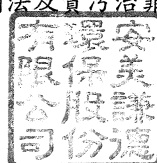 法及貪污治罪
安美謙德
環保股份
有限公司